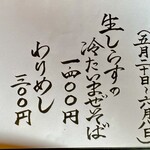 (五月二十日~六月八日)
生しらすの
冷たいまぜそば
一、四〇〇円
わりめし
三〇〇円